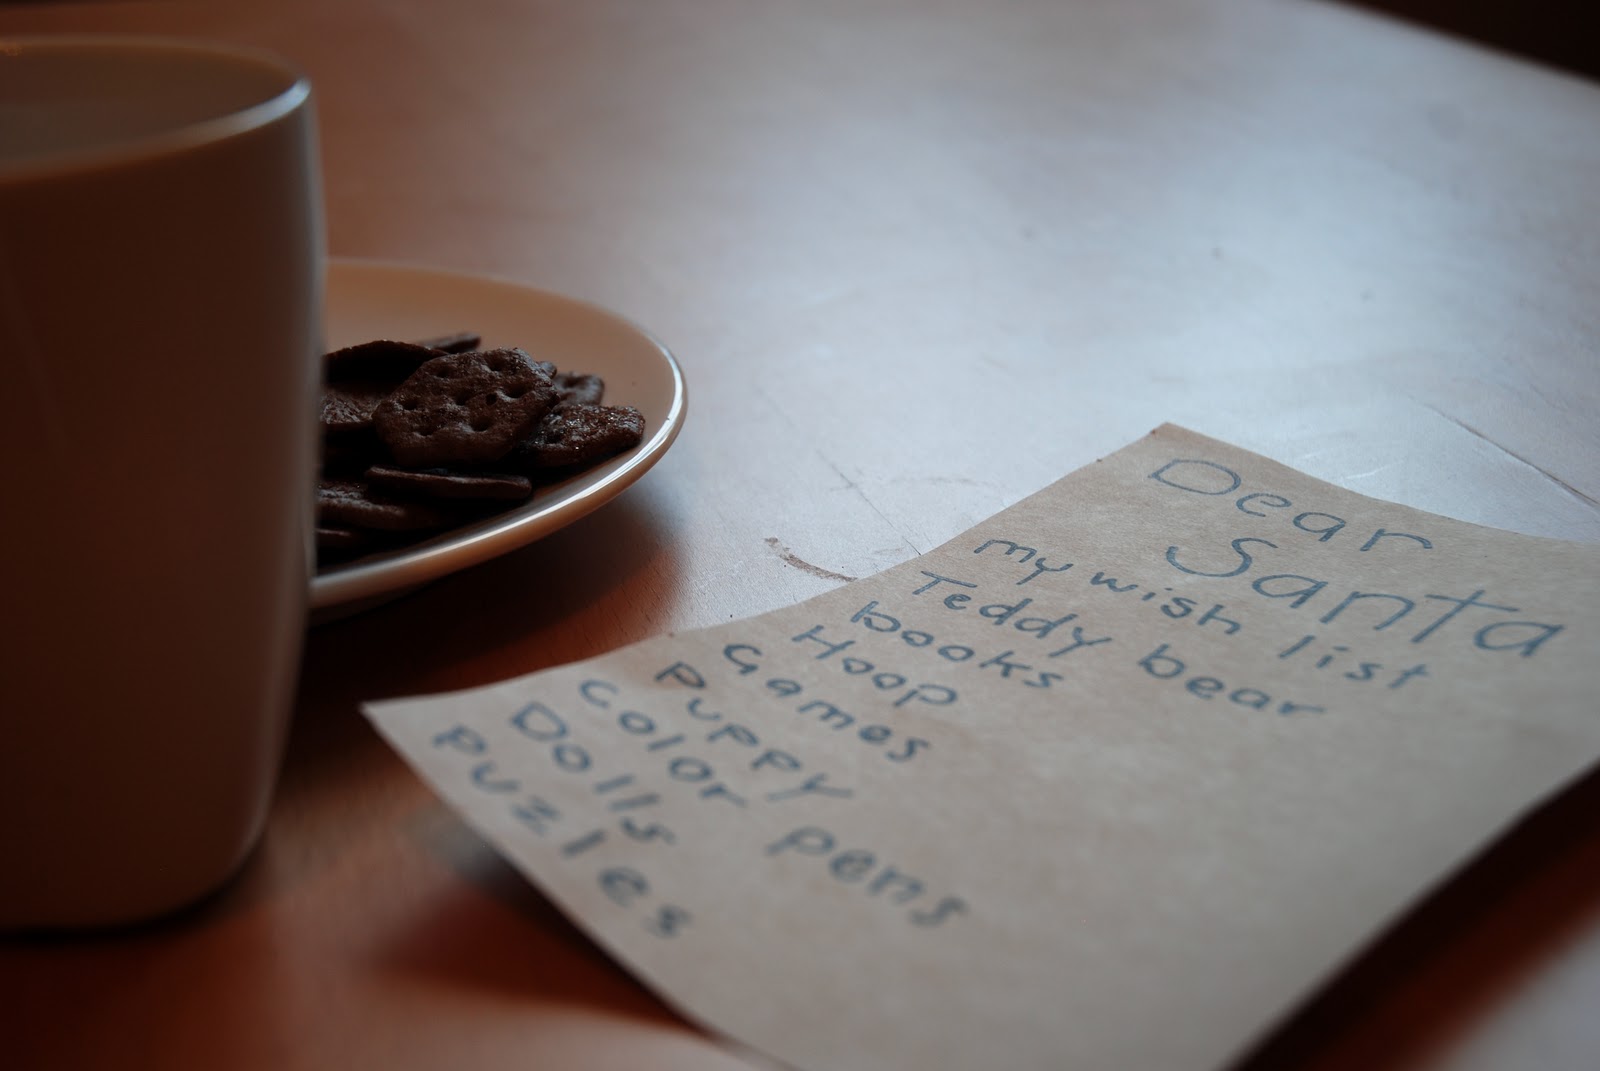 Dear
Santa
my wish list
Teddy bear
books
Hoop
Games
puppy
Color pens
Dolls
puzles